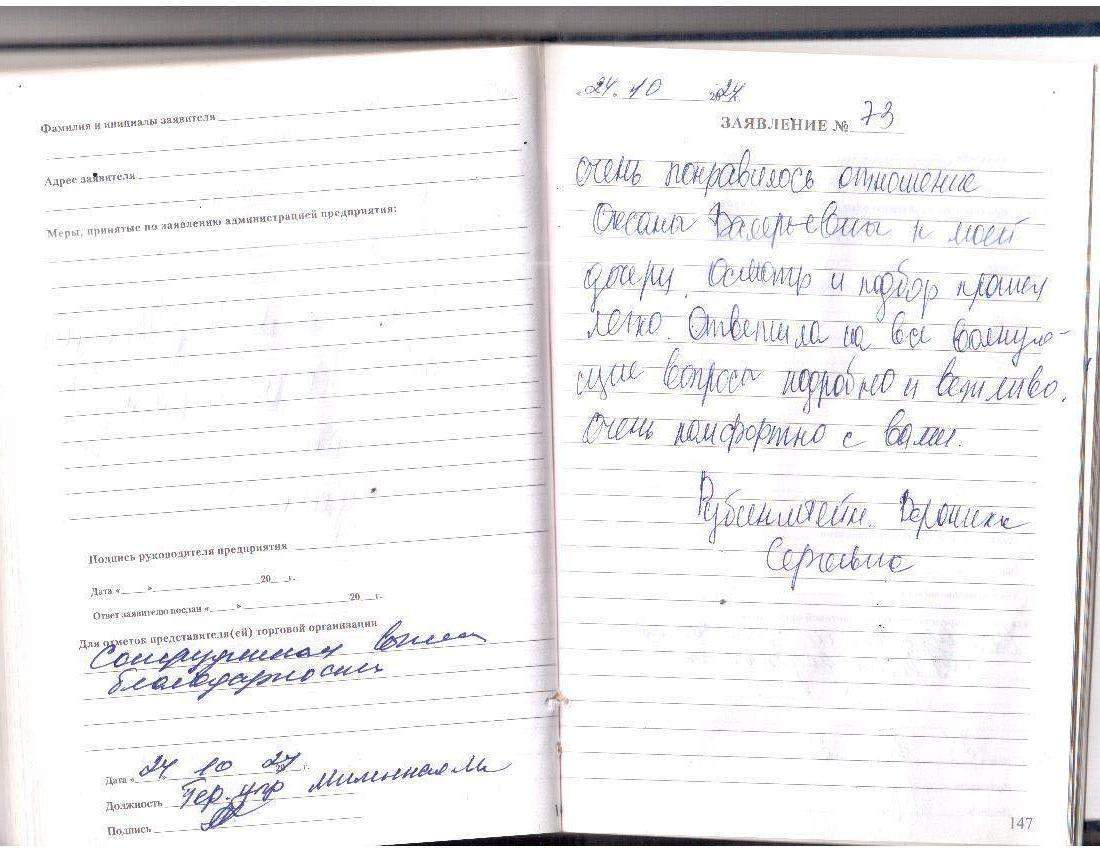 Фамилия и инициалы заявителя
Адрес заявителя
Меры, принятые по заявлению администрацией предприятия:
Подпись руководителя предприятия
Дата «    »    20    г.
Ответ заявителю послан «    »    20    г.
Для отметок представителя(ей) торговой организации
Сотрудникам
благодарности
Дата «24 10 24 г.
Должность Тер. упр
Подпись
24. 10 2024
ЗАЯВЛЕНИЕ № 73
Очень понравилось отношение
Оксаны Валерьевны к моей
дочери. Осмотр и подбор прошел
легко. Ответила на все волную-
щие вопросы подробно и вежливо.
Очень комфортно с вами.
Рубинштейн Вероника
Сергеевна
147